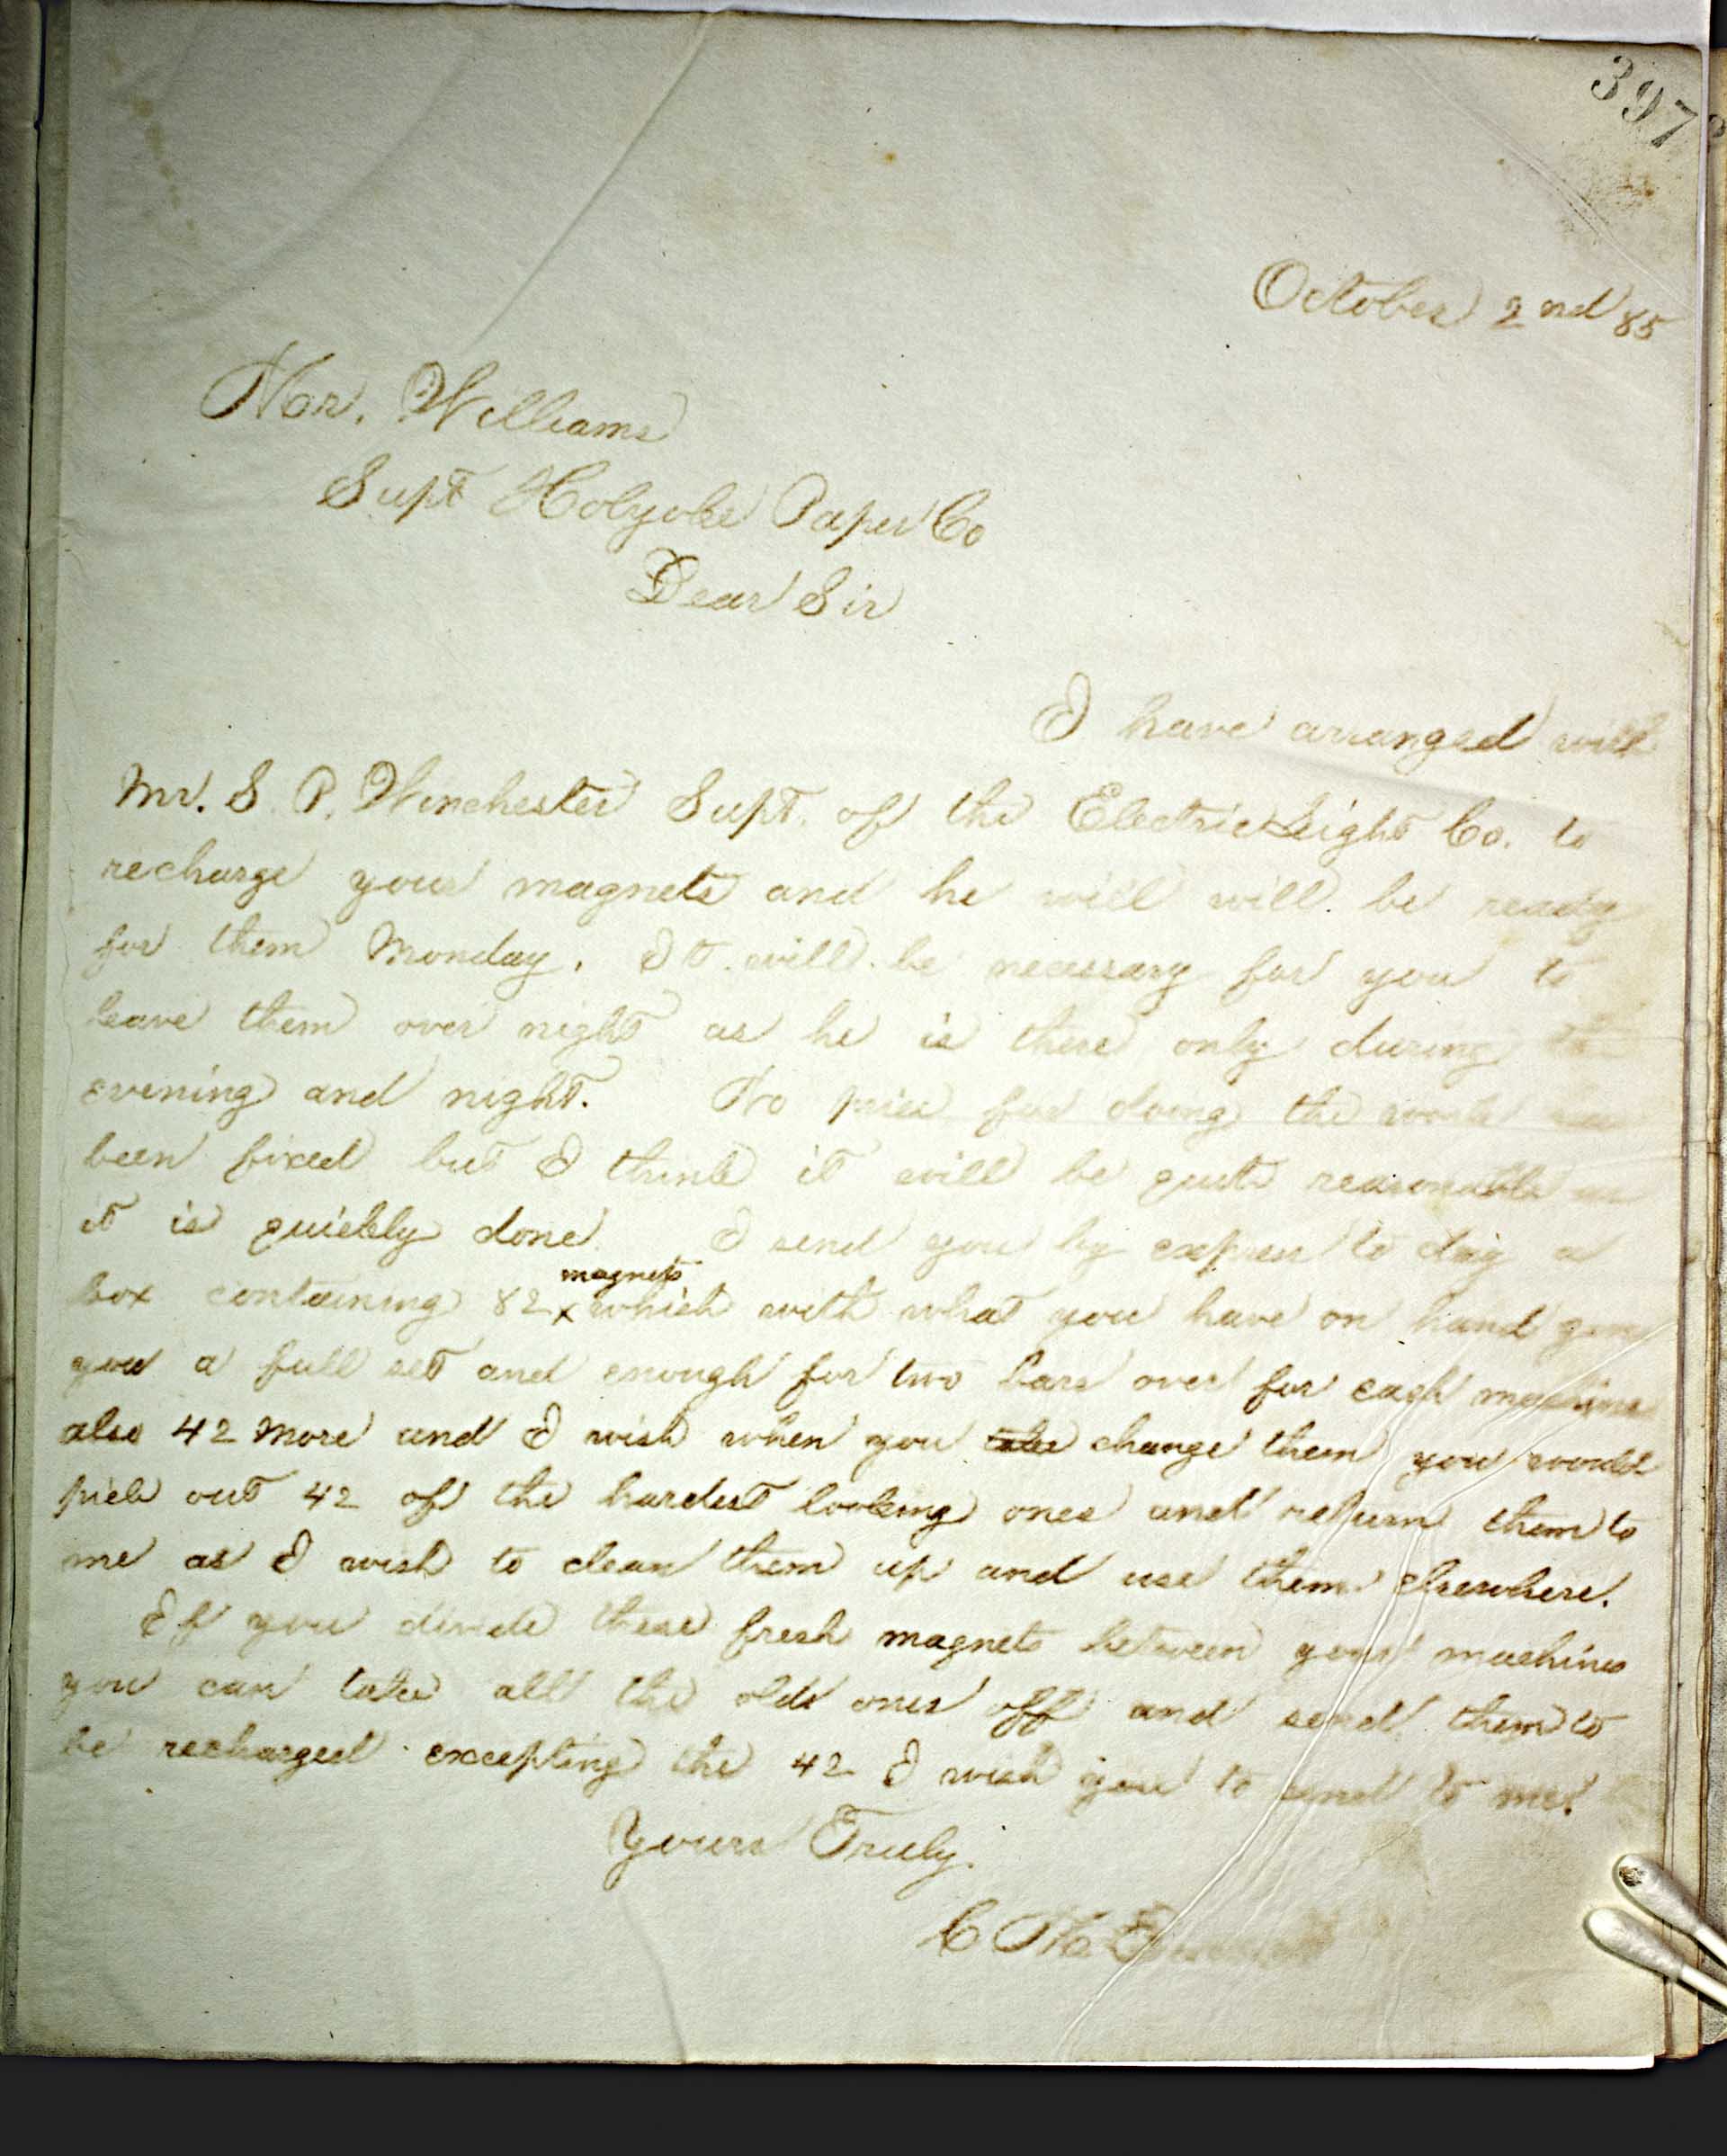 397
October 2nd 85
Mr. Williams
Supt Holyoke Paper Co
Dear Sir
I have arranged with
Mr. S. P. Winchester Supt. of the Electric Light Co. to
recharge your magnets and he will will be ready
for them Monday. It will be necessary for you to
leave them over night as he is there only during the
evening and night. No price for doing the work has
been fixed but I think it will be quite reasonable as
it is quickly done I send you by express to day a
magnets
box containing 82 x which with what you have on hand give
you a full set and enough for two bars over for each machine
also 42 more and I wish when you take change them you would
pick out 42 of the hardest looking ones and return them to
me as I wish to clean them up and use them elsewhere.
If you divide these fresh magnets between your machines
you can take all the old ones off and send them to
be recharged excepting the 42 I wish you to send to me.
Yours Truly.
C